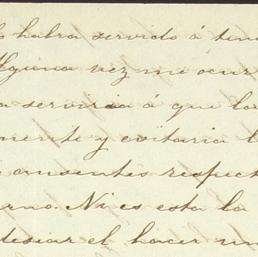 habra servido á ten
Alguna vez me ocur
a serviria á que la
mente y evitaria l
consentes respect
erno. Ni es esta la
desear el hacer un